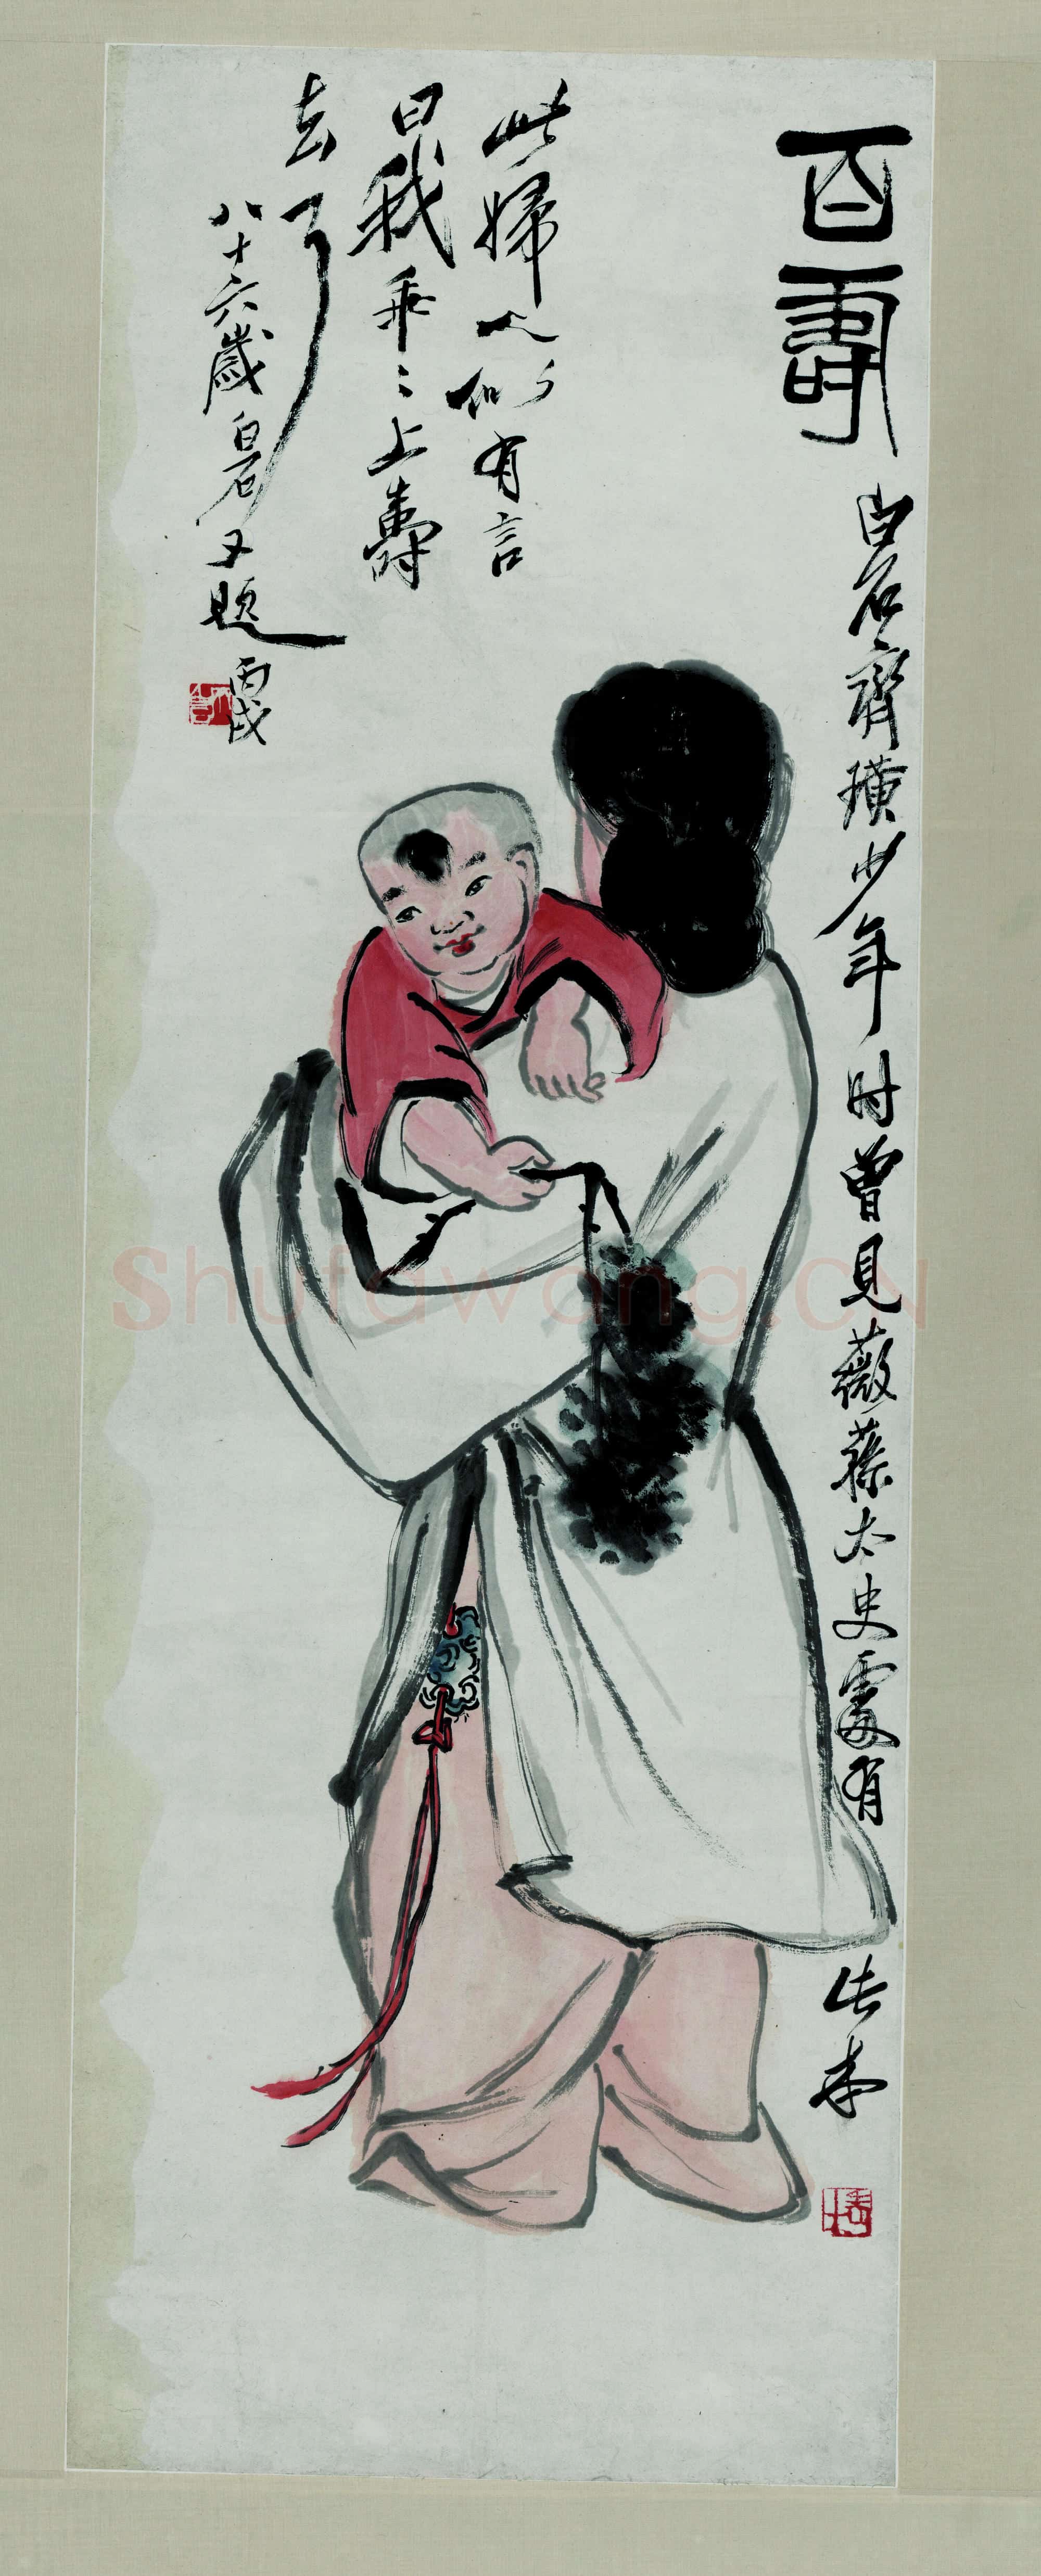 百壽
白石齊璜少年时曾見薇蓀太史處有
此本
此婦人似有言
曰我乖〻上壽
去了
八十六歲白石又題
丙戌
Shufawang.CN